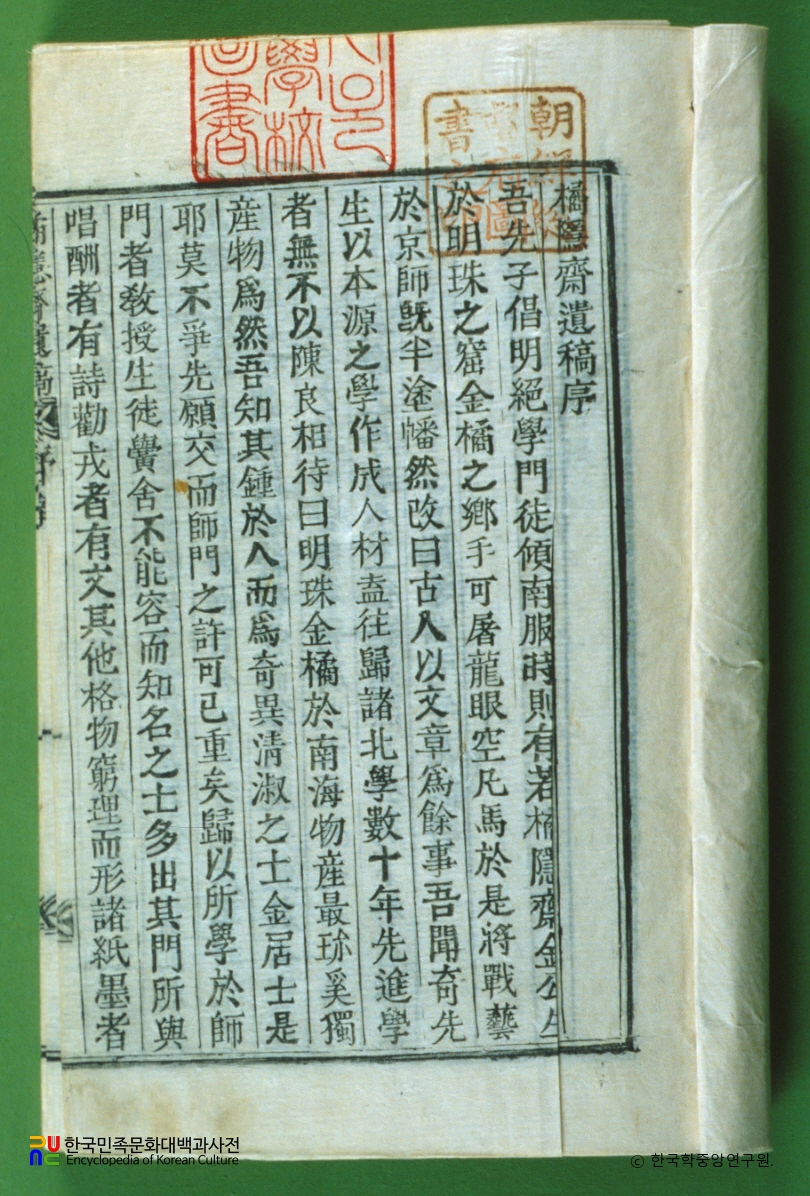 橘隱齋遺稿序
吾先子倡明絕學門徒傾南服時則有若橘隱齋金公生
於明珠之窟金橘之鄉手可屠龍眼空凡馬於是將戰藝
於京師旣半塗幡然改曰古人以文章爲餘事吾聞奇先
生以本源之學作成人材盍往歸諸北學數十年先進學
者無不以陳良相待曰明珠金橘於南海物産最珎奚獨
産物爲然吾知其鍾於人而爲奇異淸淑之士金居士是
耶莫不爭先願交而師門之許可已重矣歸以所學於師
門者敎授生徒黌舍不能容而知名之士多出其門所與
唱酬者有詩勸戎者有文其他格物窮理而形諸紙墨者
學校
書
朝
書
한국민족문화대백과사전
Encyclopedia of Korean Culture
© 한국학중앙연구원.